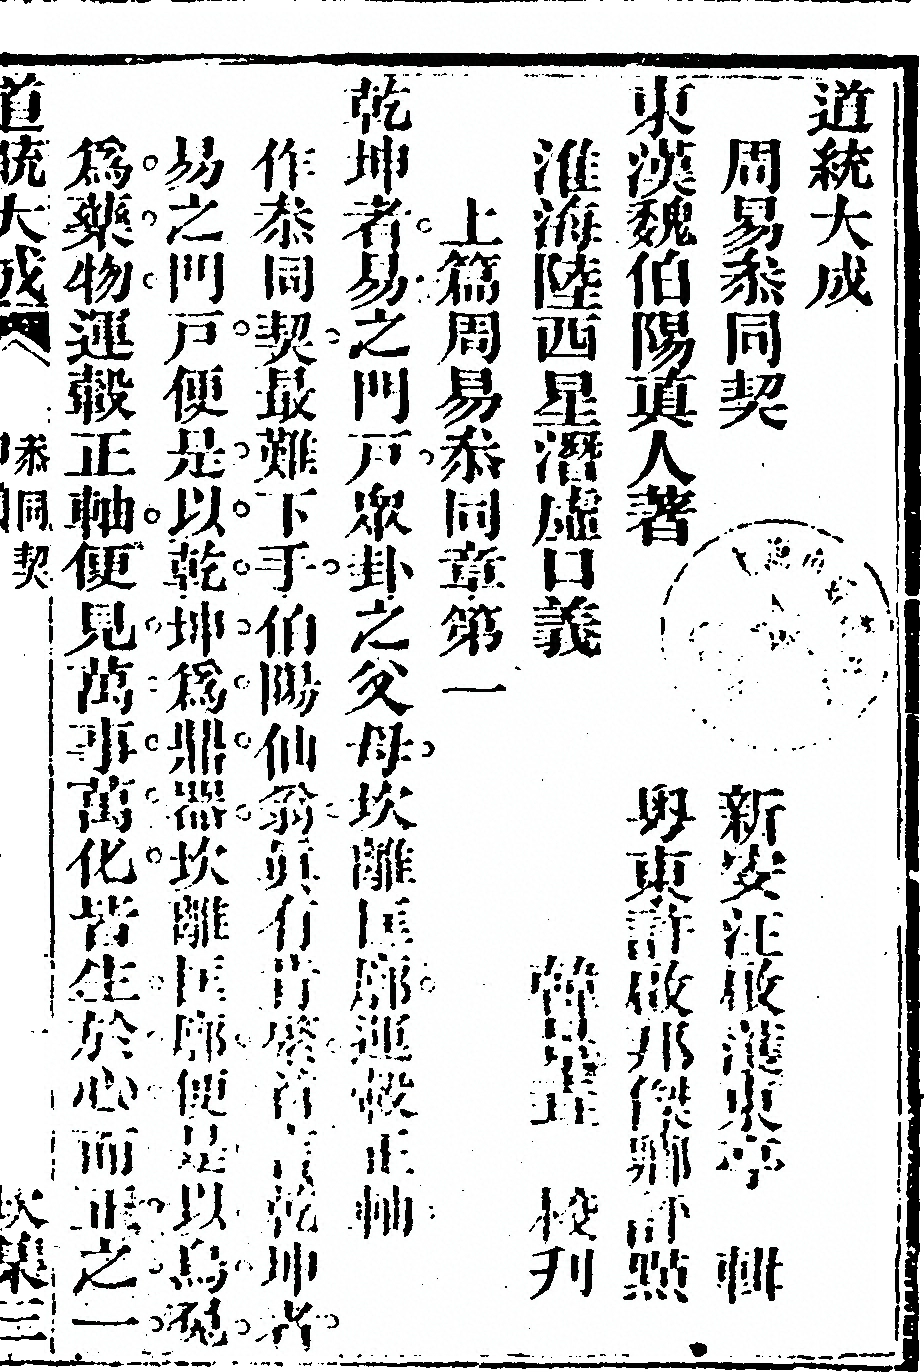 道統大成
周易叅同契
新安汪啟濩東亭 輯
東漢魏伯陽真人著
粵東許啟邦傑卿評點
淮海陸西星潛虛口義
校刋
上篇周易叅同章第一
乾坤者易之門戸眾卦之父母坎離匡廓運轂正軸
作叅同契最難下手伯陽仙翁真有言乾坤者
易之門戸便是以乾坤爲鼎器坎離匡廓便是以烏兔
爲藥物運轂正軸便見萬事萬化皆生於心而正之一
道統大成
叅同契
坎集三